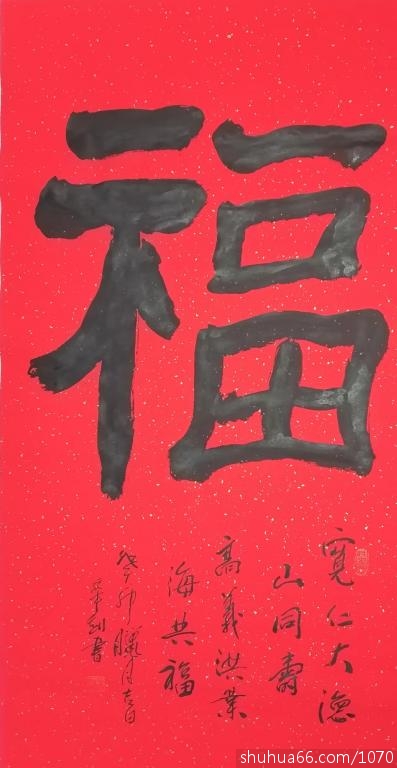 福
寬仁大德
山同壽
高義洪業
海共福
癸卯臘月吉日
書
shuhua66.com/1070